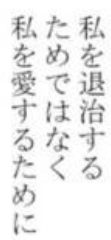 私を退治する
ためではなく
私を愛するために